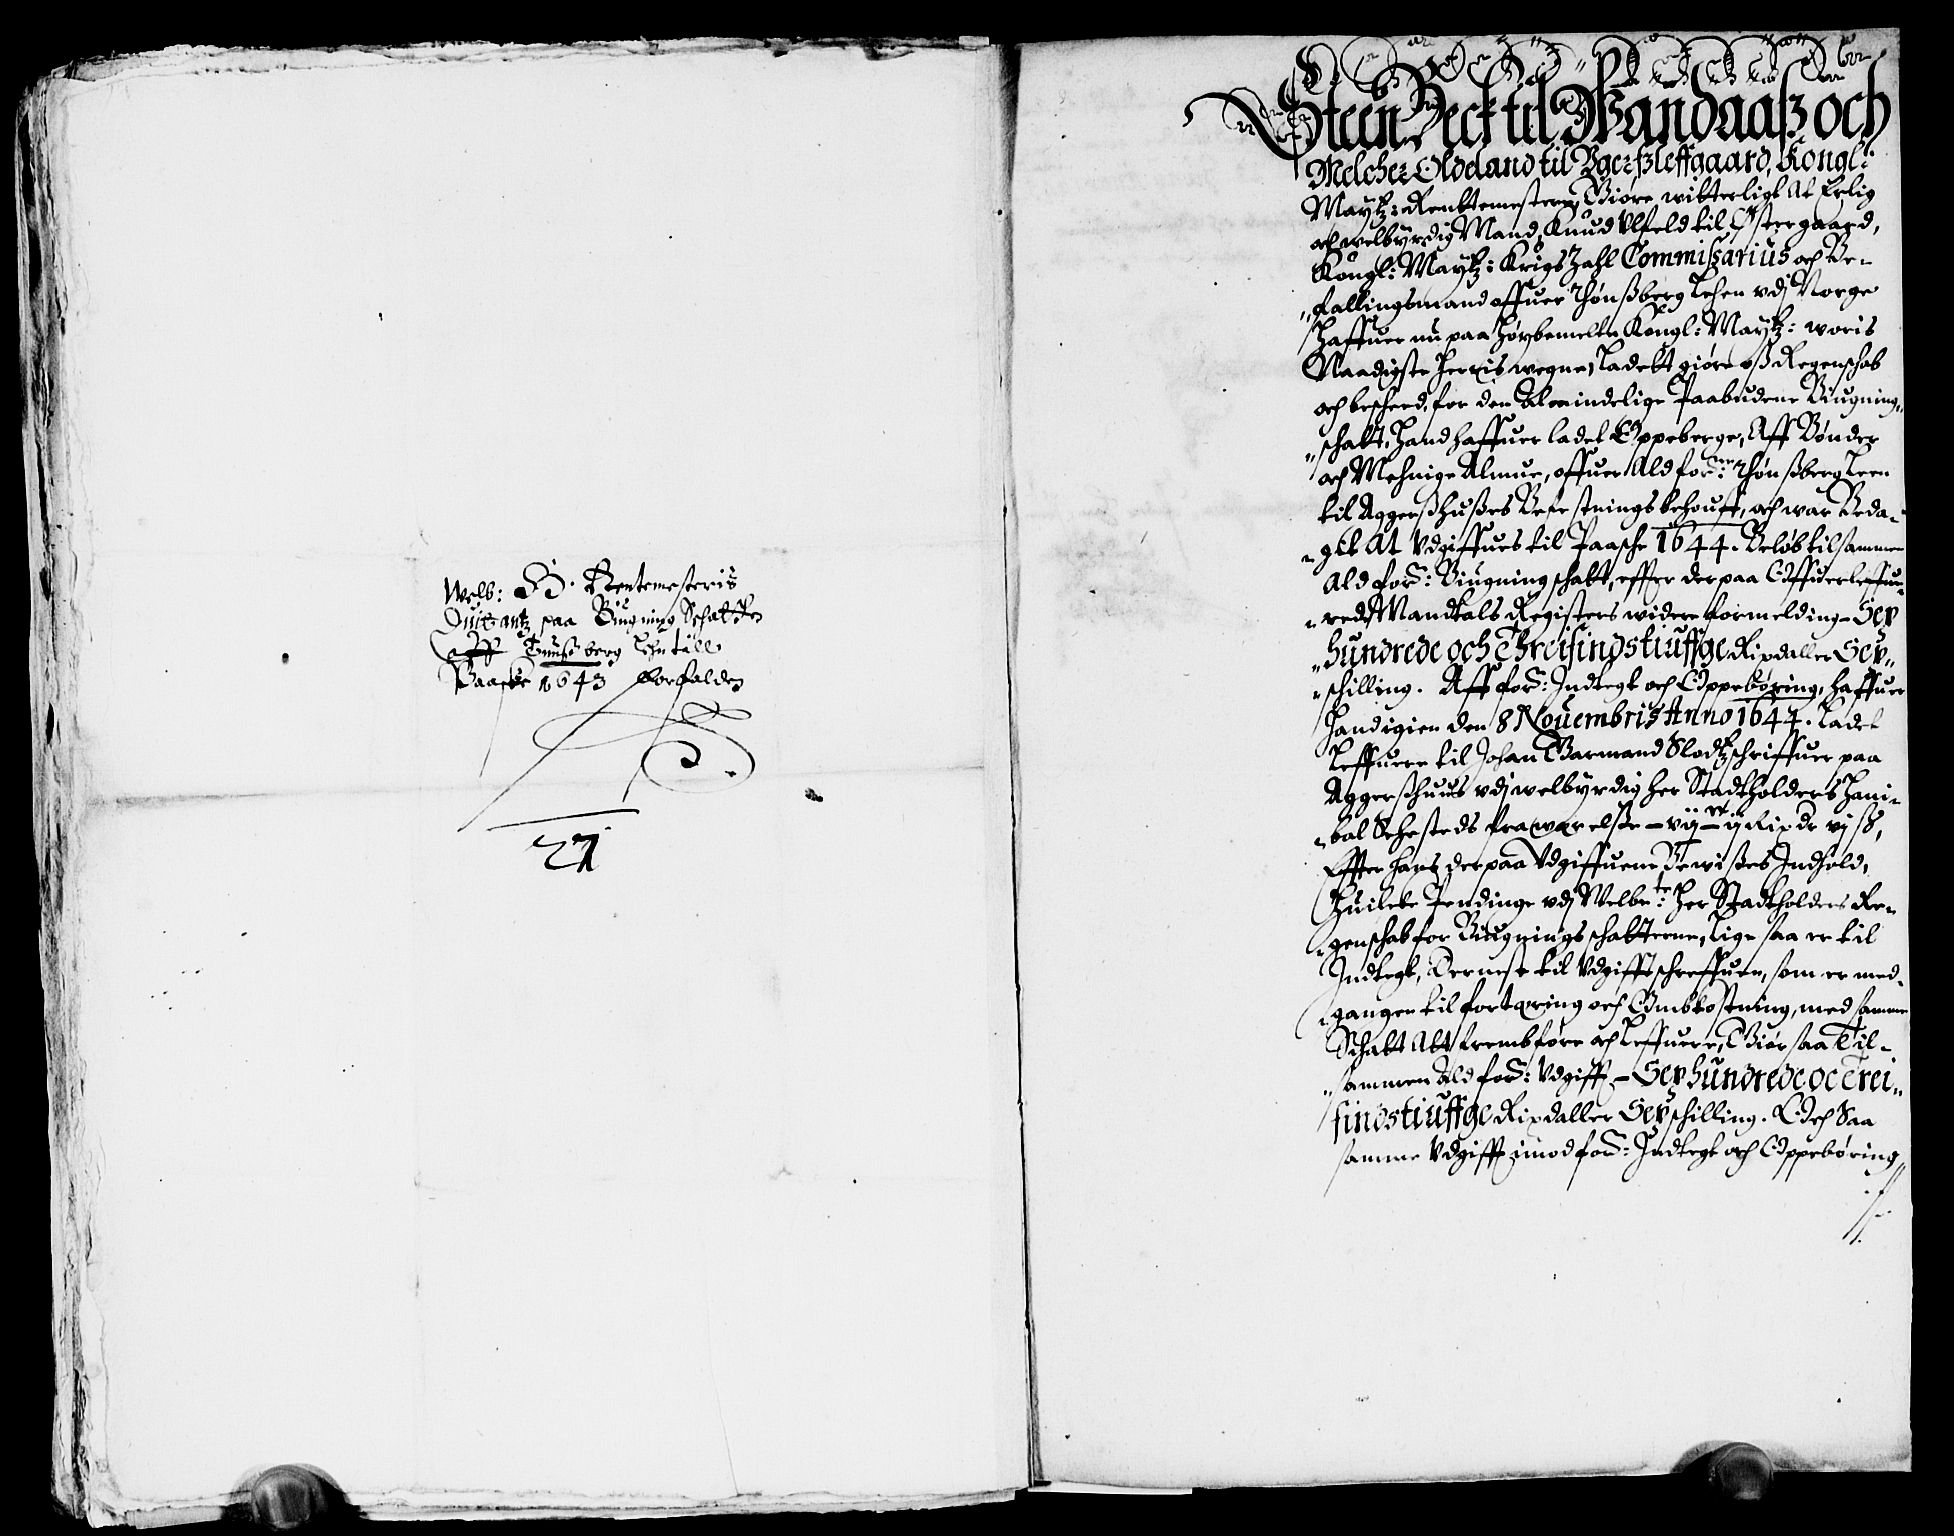 Welb: H. Rentemesteris
Quitantz paa Biugning Schatten
Aff Tønßberg Lehn till
Paaske 1643 forfalden
27
Steen Beck til Wandaaß och
Melcher Oldeland til Vgerßleffgaard, Kongl:
Maytz: Rentemestere, Giøre witterligt At Erlig
och welbyrdig Mand, Knud Ulfeld til Østergaard,
Kongl: Maytz: Krigs Zahl Commissarius och Be-
fallingsmand offuer Thønßberg Lehen vdj Norge
Haffuer nu paa Høybemelte Kongl: Maytz: woris
Naadigste Herris wegne, Ladett giøre oß Regenschab
och bescheed, for den Almindelige Paabudene Biugning-
schatt, Hand haffuer ladet Oppeberge, Aff Bønder
och Mehnige Almue, offuer Ald forne: Thønßberg Leen
til Aggerßhußes Befestnings behouff, och war Beda-
get At Vdgiffues til Paasche 1644. Beløb tilsammen
Ald forS: Biugningschatt, effter derpaa Offuerleffue-
rede Mandtals Registers widere formelding - Sex
hundrede och Threisindstiuffge Rixdaller Sex
schilling. Aff forS: Indtegt och Oppebøring, haffuer
Hand igien den 8 Nouembris Anno 1644. Ladet
Leffuere til Johan Garmand Slodtzschriffuer paa
Aggerßhuus vdj welbyrdig Her Stadtholders Hani-
bal Sehesteds frawærelße - vij - ij Rixdr vj ß,
Effter hans derpaa Vdgiffuene Bewißes Indhold,
Huilcke Pendinge vdj Welbte: Her Stadtholders Re-
genschab for Biugningschatterne, lige saa er til
Indtegt, Dernest til Vdgifft schreffuen, som er med-
gangen til fortæring och Ombkostning, med samme
Schatt Att frembføre och Leffuere, Giør saa Til-
sammen Ald forS: Vdgifft - Sex hundrede oc Trei-
sindstiuffge Rixdaller Sex schilling. Och Saa
samme Vdgifft imod forS: Indtegt och Oppebøring